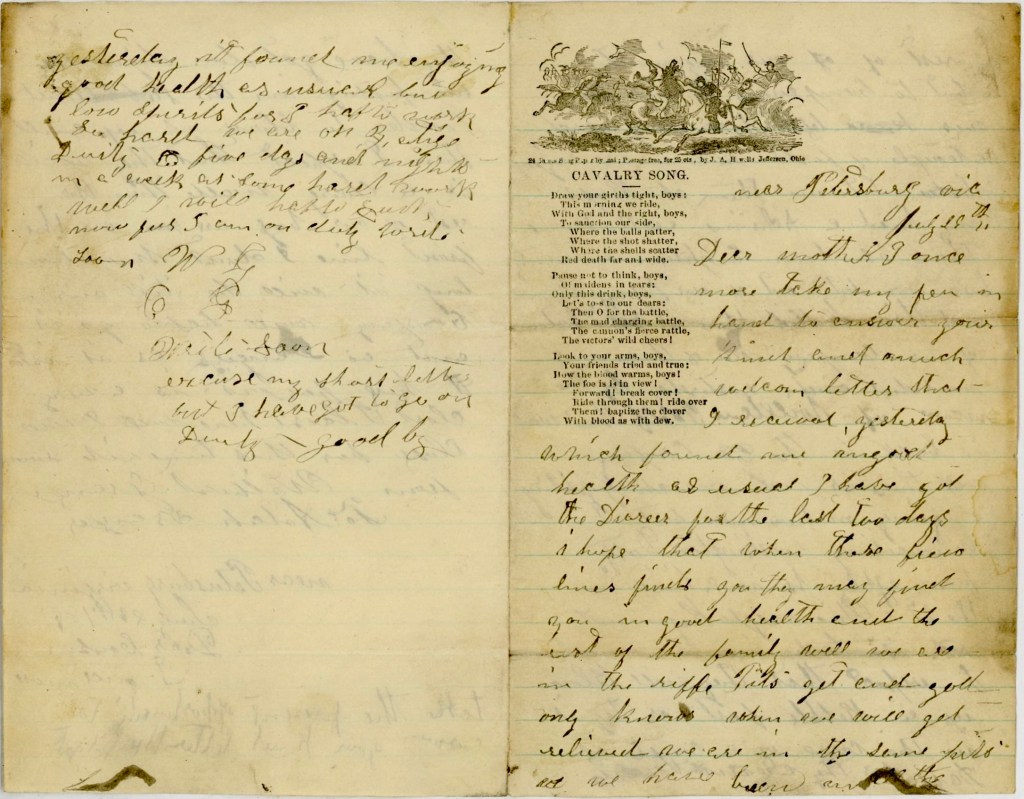 yesterday it found me enjoying
good health as usual but
low spirits for I hafto work
so hard we are on
Duity five days and nights
in a week at some hard work
well I will hafto
now for I am on duty write
soon W
Write Soon
excuse my short letter
but I have got to go on
Duity good by
by J. A. Howells Jefferson, Ohio
CAVALRY SONG.
Draw your girths tight, boys;
This morning we ride,
With God and the right, boys,
To sanction our side,
Where the balls patter,
Where the shot shatter,
Where the shells scatter
Red death far and wide.
Pause not to think, boys,
Of maidens in tears;
Only this drink, boys,
Let's toss to our dears:
Then O for the battle,
The mad charging battle,
The cannon's fierce rattle,
The victors' wild cheers!
Look to your arms, boys,
Your friends tried and true;
How the blood warms, boys!
The foe is in view!
Forward! break cover!
Ride through them! ride over
Them! baptize the clover
With blood as with dew.
near Petersburg
July 28th
Dear mother I once
more take my pen in
hand to answer your
kind and much
welcom letter that
I received yesterday
which found me in good
health as usual I have got
the for the last too days
i hope that when these few
lines finds you they may find
you in good health and the
rest of the family well we are
in the riffle Pits yet and god
only knows when we will get
relieved we are in the same pits
we have been